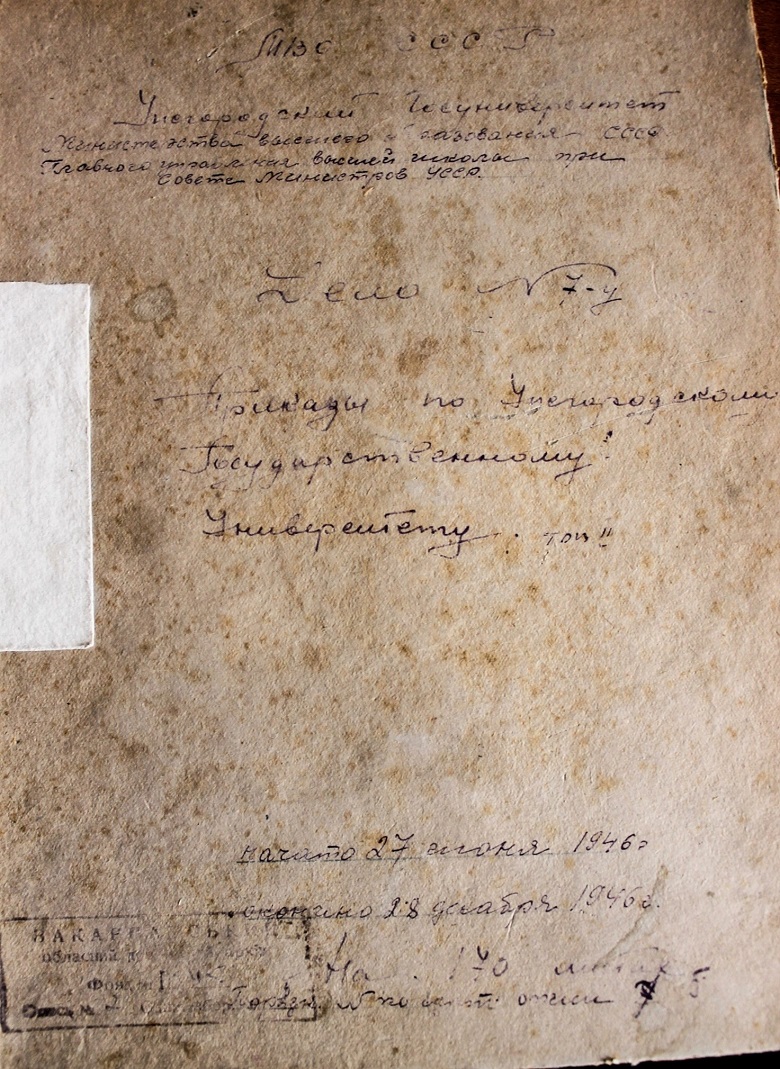 МВО СССР
Ужгородский Госуниверситет
Министерства высшего образования СССР
Главного управления высшей школы при
Совете Министров УССР.
Дело № 7-у
Приказы по Ужгородскому
Государственному
Университету. том II
начато 27 июня 1946г
окончено 28 декабря 1946г.
На 170 листах
ЗАКАРПАТСЬКИЙ
обласний державний архів
Фонд №
Опись №